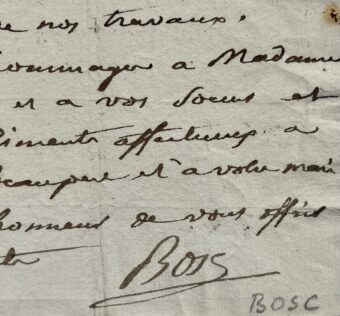 de nos travaux.
hommages à Madame
et a vos soeurs et
pliments affectueux a
beaupere et a votre mari
honneur de vous offrir
Bosc
BOSC